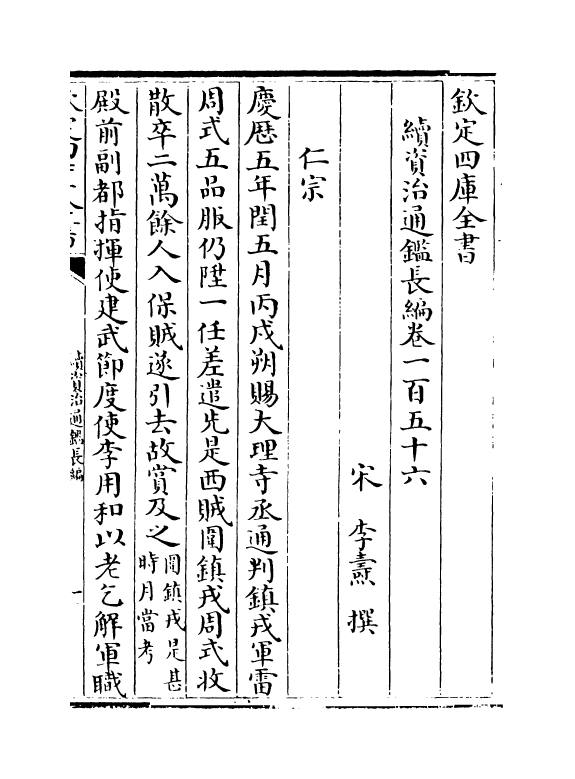 欽定四庫全書
續資治通鑑長編卷一百五十六
宋 李燾 撰
仁宗
慶歷五年閏五月丙戌朔賜大理寺丞通判鎮戎軍雷
周式五品服仍陞一任差遣先是西賊圍鎮戎周式收
散卒二萬餘人入保賊遂引去故賞及之圍鎮戎是甚時月當考
殿前副都指揮使建武節度使李用和以老乞解軍職
欽定四庫全書
續資治通鑑長編
一